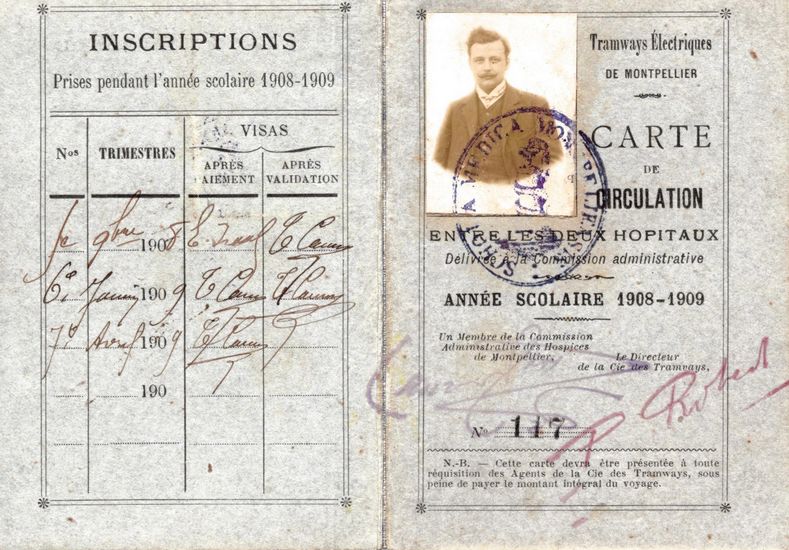 INSCRIPTIONS
Prises pendant l'année scolaire 1908-1909
Nos TRIMESTRES VISAS
APRÈS PAIEMENT APRÈS VALIDATION
5e 9bre 1908
6e Janv 1909
7e Avril 1909
190
Tramways Électriques
DE MONTPELLIER
CARTE
DE
CIRCULATION
ENTRE LES DEUX HOPITAUX
Délivrée à la Commission administrative
ANNÉE SCOLAIRE 1908-1909
Un Membre de la Commission
Administrative des Hospices
de Montpellier,
Le Directeur
de la Cie des Tramways,
Robert
No 117
N.-B. — Cette carte devra être présentée à toute
réquisition des Agents de la Cie des Tramways, sous
peine de payer le montant intégral du voyage.